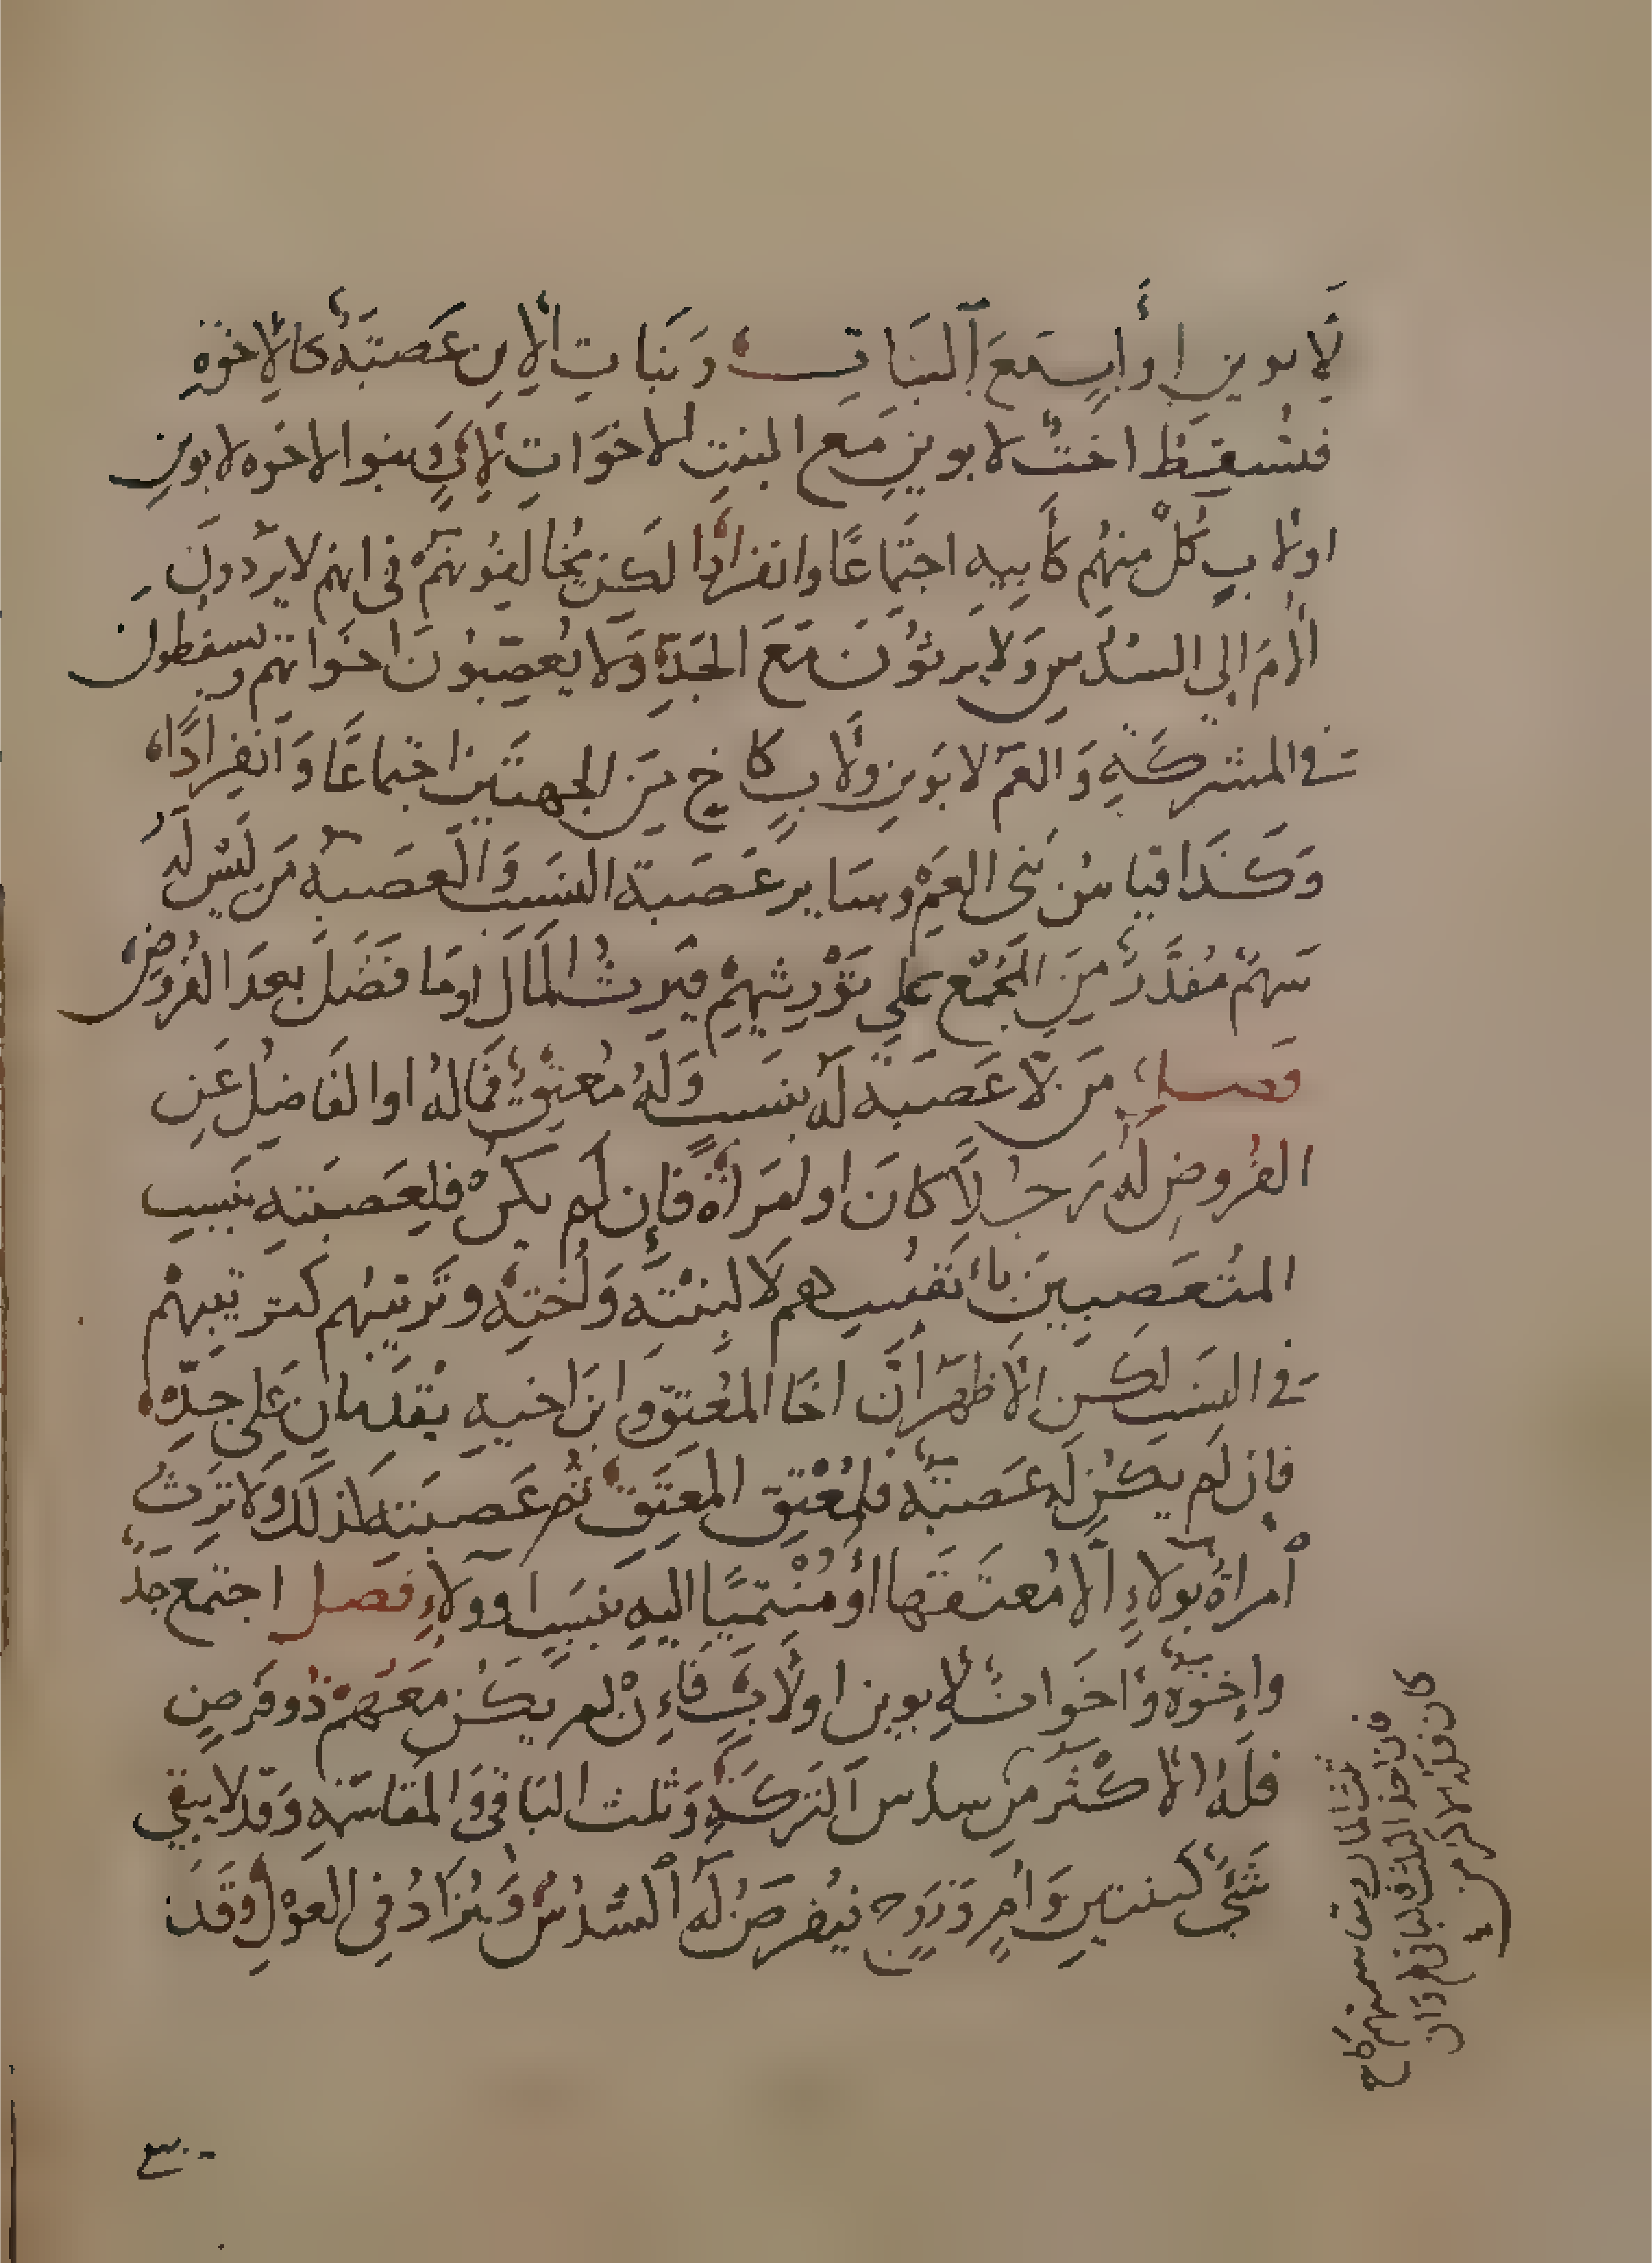 لأبوين أو أب مع البنات وبنات الابن عصبة كالإخوة
فتسقط أخت لأبوين مع البنت الأخوات لأب وبنوا الإخوة لأبوين
أو لأب كل منهم كأبيه اجتماعا وانفرادا لكن يخالفونهم في أنهم لا يردون
الأم إلى السدس ولا يرثون مع الجد ولا يعصبون أخواتهم ويسقطون
في المشركة والعم لأبوين ولأب كأخ من الجهتين اجتماعا وانفرادا
وكذا قياس بني العم وساير عصبة النسب والعصبة من ليس له
سهم مقدر من المجمع على توريثهم فيرث المال أو ما فضل بعد الفروض
فصل من لا عصبة له بنسب وله معتق فماله أو الفاضل عن
الفروض له رجلا كان أو امرأة فإن لم يكن فلعصبته بنسب
المتعصبين بأنفسهم لا لبنته وأخته وترتيبهم كترتيبهم
في النسب لكن الأظهر أن أخا المعتق وابن أخيه يقدمان على جده
فإن لم يكن له عصبة فلمعتق المعتق ثم عصبته كذلك ولا ترث
امرأة بولاء إلا معتقها أو منتميا إليه بنسب أو ولاء فصل اجتمع جد
وإخوة وأخوات لأبوين أو لأب فإن لم يكن معهم ذو فرض
فله الأكثر من سدس التركة وثلث الباقي والمقاسمة وقد لا يبقى
شيء كبنتين وأم وزوج فيفرض له السدس ويزاد في العول وقد
ثلث المال ومقاسمتهم كأخ
فإن أخذ الثلث فالباقي لهم وإن
كان فله الأكثر من
٣٠